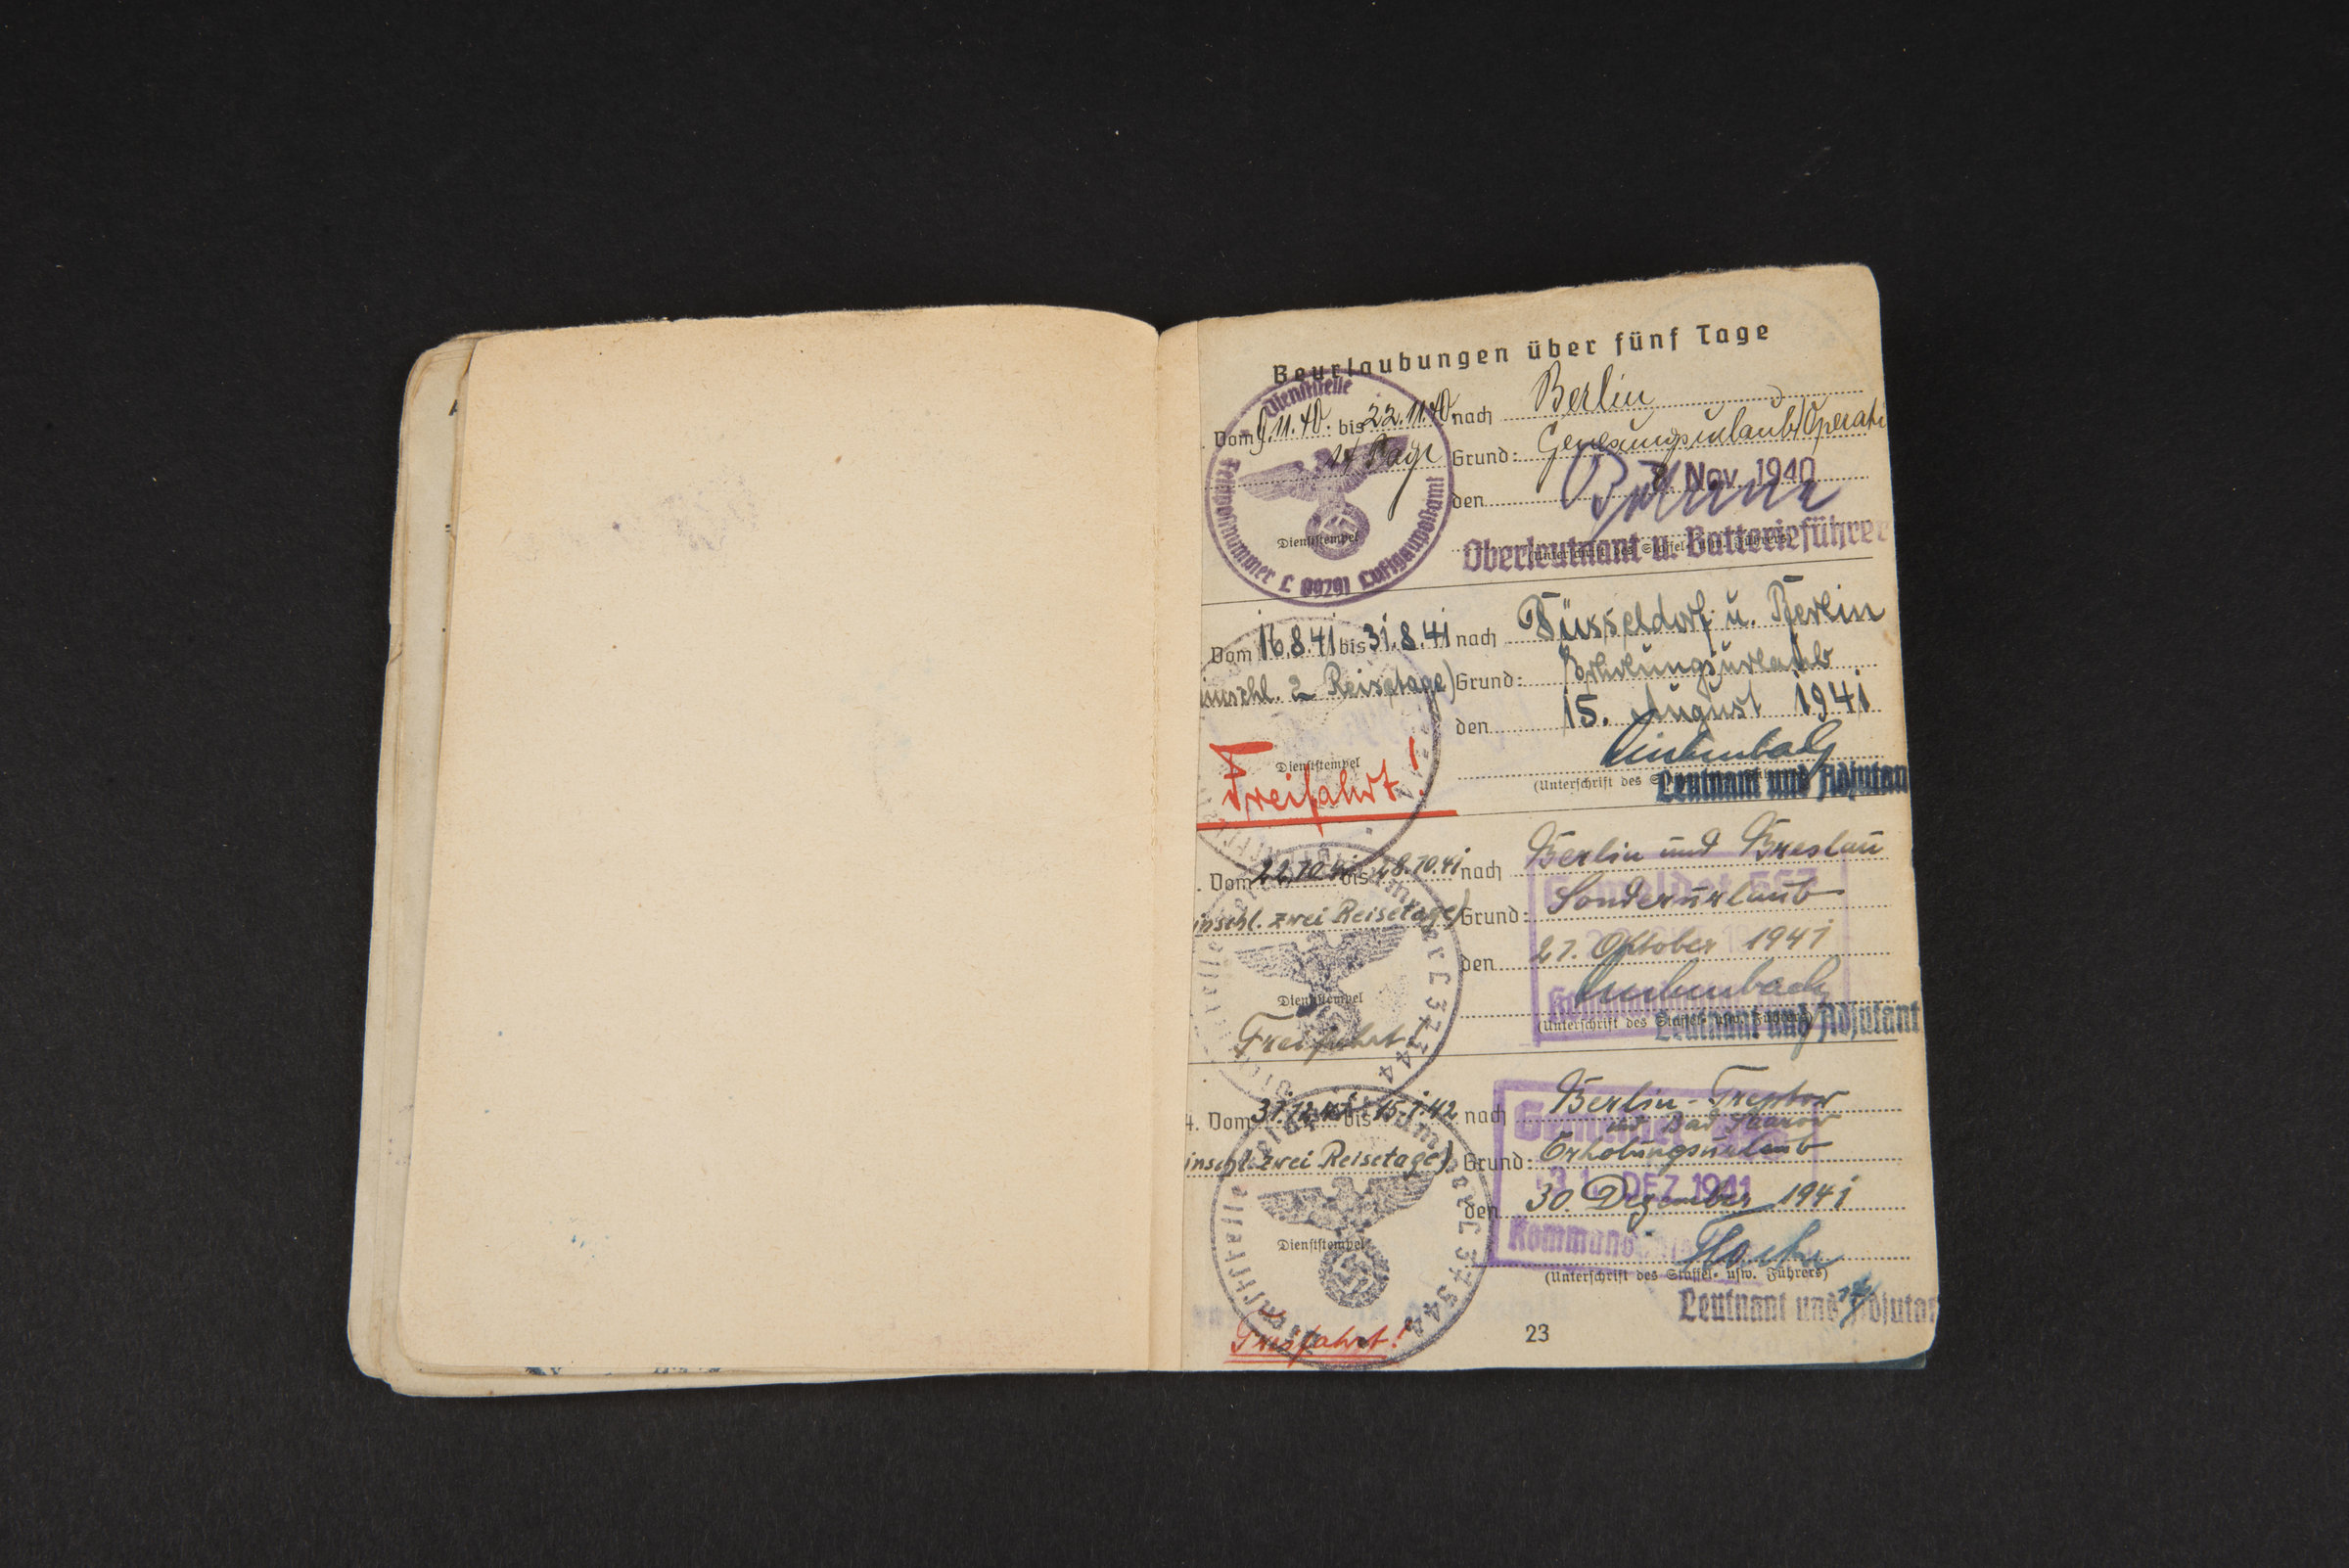 Beurlaubungen über fünf Tage
Dienststelle
Feldpostnummer L 09291 Luftgaupostamt
. Vom 9.11.40. bis 22.11.40. nach Berlin
14 Tage Grund: Genesungsurlaub/Operati
den 8. Nov. 1940
Dienststempel
(Unterschrift des Staffel- usw. Führers)
Oberleutnant u. Batterieführer
Vom 16.8.41 bis 31.8.41 nach Düsseldorf u. Berlin
einschl. 2 Reisetage) Grund: Erholungsurlaub
den 15. August 1941
Dienststempel
Freifahrt!
(Unterschrift des
Leutnant und Adjutan
. Vom 22.10.41 bis 28.10.41 nach Berlin und Breslau
inschl. zwei Reisetage) Grund: Sonderurlaub
den 21. Oktober 1941
Dienststempel
Freifahrt!
(Unterschrift des Staffel- usw. Führers)
Leutnant und Adjutant
4. Vom 31.12.41 bis 15.1.42 nach Berlin-Treptow
und Bad Saarow
inschl. zwei Reisetage) Grund: Erholungsurlaub
31. DEZ. 1941
den 30. Dezember 1941
Dienststempel
(Unterschrift des Staffel- usw. Führers)
Leutnant und Adjutan
Freifahrt!
23